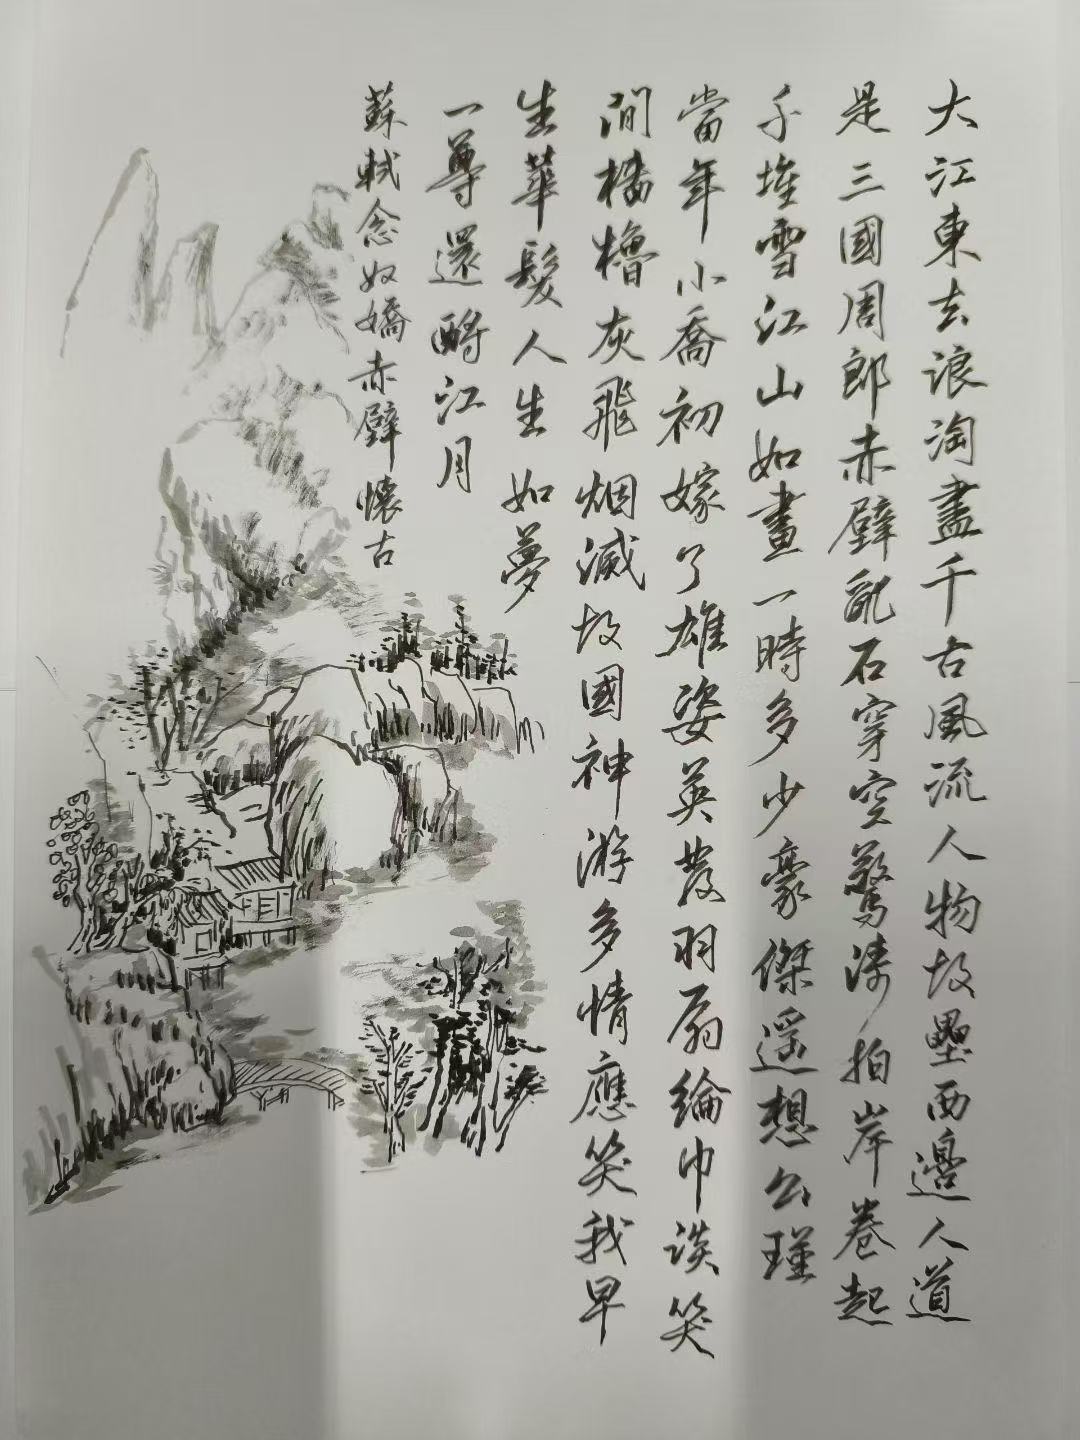 大江東去浪淘盡千古風流人物故壘西邊人道
是三國周郎赤壁亂石穿空驚濤拍岸卷起
千堆雪江山如畫一時多少豪傑遥想公瑾
當年小喬初嫁了雄姿英發羽扇綸巾談笑
間檣櫓灰飛烟滅故國神游多情應笑我早
生華髮人生如夢
一尊還酹江月
蘇軾念奴嬌赤壁懷古